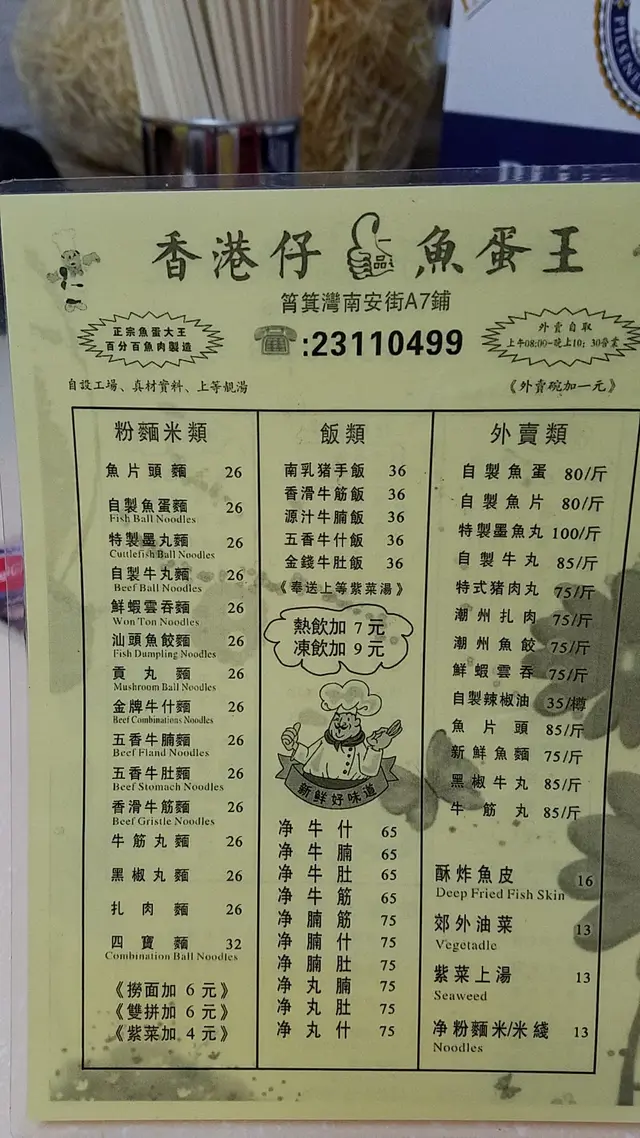 PILSENER
香港仔 魚蛋王
筲箕灣南安街A7鋪
☎:23110499
正宗魚蛋大王
百分百魚肉製造
外賣自取
上午08:00-晚上10:30營業
自設工場、真材實料、上等靚湯
《外賣碗加一元》
粉麵米類
魚片頭麵 26
自製魚蛋麵 26
Fish Ball Noodles
特製墨丸麵 26
Cuttlefish Ball Noodles
自製牛丸麵 26
Beef Ball Noodles
鮮蝦雲吞麵 26
Won Ton Noodles
汕頭魚餃麵 26
Fish Dumpling Noodles
貢丸麵 26
Mushroom Ball Noodles
金牌牛什麵 26
Beef Combinations Noodles
五香牛腩麵 26
Beef Fland Noodles
五香牛肚麵 26
Beef Stomach Noodles
香滑牛筋麵 26
Beef Gristle Noodles
牛筋丸麵 26
黑椒丸麵 26
扎肉麵 26
四寶麵 32
Combination Ball Noodles
《撈面加 6 元》
《雙拼加 6 元》
《紫菜加 4 元》
飯類
南乳猪手飯 36
香滑牛筋飯 36
源汁牛腩飯 36
五香牛什飯 36
金錢牛肚飯 36
《奉送上等紫菜湯》
熱飲加 7 元
凍飲加 9 元
新鮮好味道
净牛什 65
净牛腩 65
净牛肚 65
净牛筋 65
净腩筋 75
净腩什 75
净腩肚 75
净丸腩 75
净丸肚 75
净丸什 75
外賣類
自製魚蛋 80/斤
自製魚片 80/斤
特製墨魚丸 100/斤
自製牛丸 85/斤
特式猪肉丸 75/斤
潮州扎肉 75/斤
潮州魚餃 75/斤
鮮蝦雲吞 75/斤
自製辣椒油 35/樽
魚片頭 85/斤
新鮮魚麵 75/斤
黑椒牛丸 85/斤
牛筋丸 85/斤
酥炸魚皮 16
Deep Fried Fish Skin
郊外油菜 13
Vegetadle
紫菜上湯 13
Seaweed
净粉麵米/米綫 13
Noodles